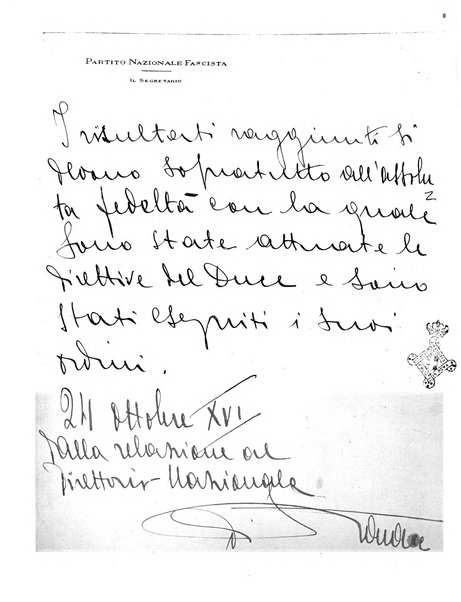 9
PARTITO NAZIONALE FASCISTA
IL SEGRETARIO
I risultati raggiunti si
devono sopratutto all'assolu
ta fedeltà con la quale
sono state attuate le
direttive del Duce e sono
stati eseguiti i suoi
ordini.
24 ottobre XVI
Dalla relazione al
Direttorio Nazionale